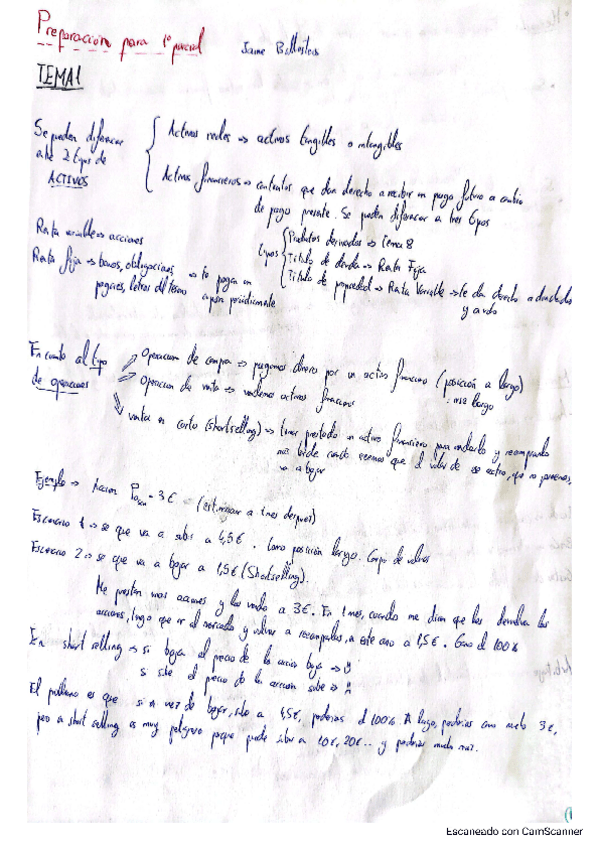 Preparación para 1º parcial
Jaime Ballesteros
TEMA 1
Se pueden diferenciar
2 tipos de
ACTIVOS
Activos reales => activos tangibles o intangibles
Activos financieros => contratos que dan derecho a recibir un pago futuro a cambio
de pago presente. Se pueden diferenciar a tres tipos
tipos
Productos derivados => Tema 8
Título de deuda => Renta Fija
Título de propiedad => Renta Variable => te dan derecho a dividendos
y a voto
Renta variable => acciones
Renta fija => bonos, obligaciones, => te pagan un
pagarés, letras del tesoro cupón periódicamente
En cuanto al tipo
de operaciones
Operación de compra => pagamos dinero por un activo financiero (posición a largo)
Operación de venta => vendemos activos financieros
venta en corto (shortselling) => tomar prestado un activo financiero para venderlo y recomprarlo
más tarde cuando creemos que el valor de ese activo, que no poseemos,
va a bajar
Ejemplo => Acción = 3€ - (a 1 mes después)
Escenario 1 => se que va a subir a 4,5€. Tomo posición larga.
Escenario 2 => se que va a bajar a 1,5€ (Shortselling).
Me prestan unas acciones y las vendo a 3€. En 1 mes, cuando me dicen que les devuelva las
acciones, tengo que ir al mercado y volver a recomprarlas, a este caso a 1,5€. Gano el 100%
En short selling => si baja el precio de la acción baja => :)
si sube el precio de la acción sube => :(
El problema es que si en vez de bajar, sube a 4,5€, perderías el 100%. A largo, perderías como mucho 3€,
pero a short selling es muy peligroso porque puede subir a 10€, 20€... y perderías mucho más.
Escaneado con CamScanner